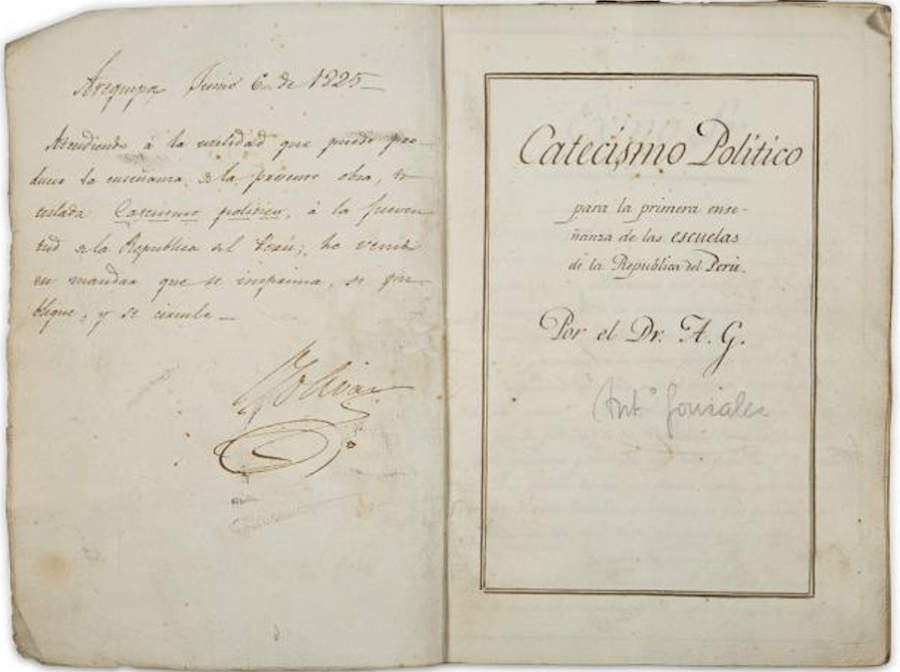 Arequipa Junio 6. de 1825_
Atendiendo á la utilidad que puede pro-
ducir la enseñanza de la presente obra, ti-
tulada Catecismo político, á la juven-
tud de la Republica del Perú; he venido
en mandar que se imprima, se pu-
blique, y se circule_
Bolivar
Catecismo Politico
para la primera ense-
ñanza de las escuelas
de la Republica del Perú.
Por el Dr. A. G.
Antº Gonsalez